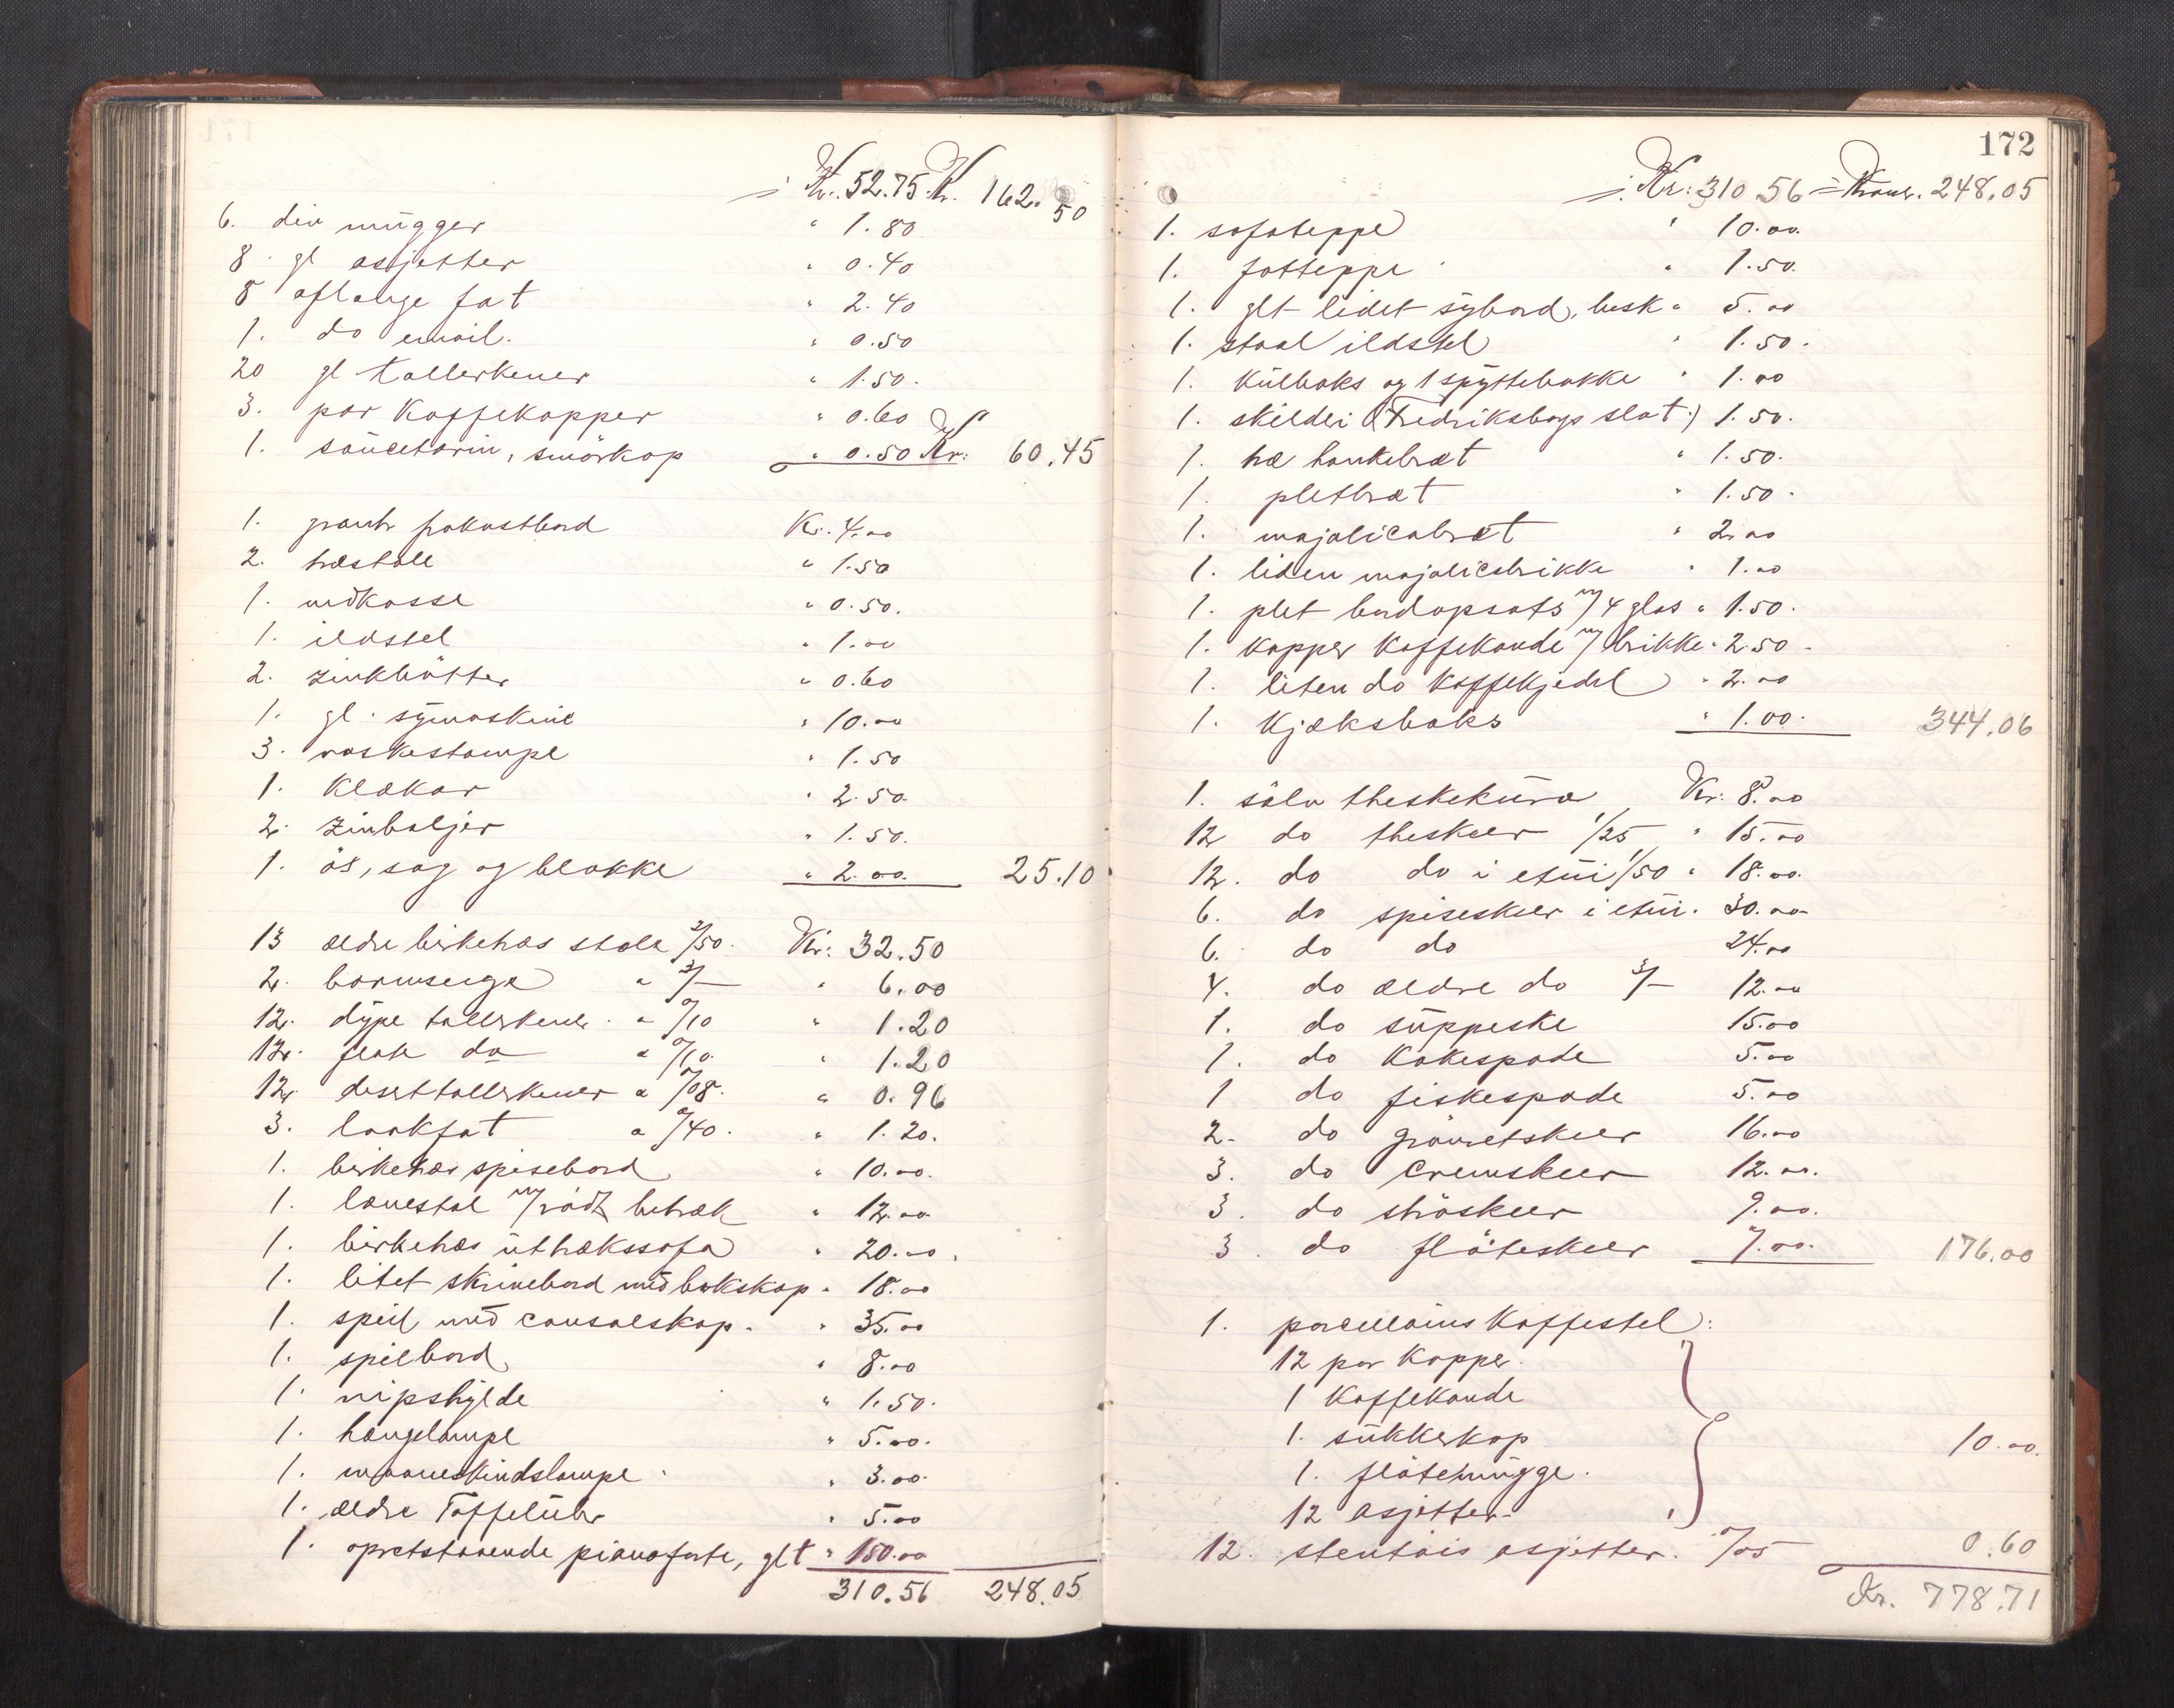 : Kr. 52.75. Kr. 162.50
6. div mugger " 1.80
8 gl asjetter " 0.40
8 aflange fat " 2.40
1. do email. " 0.50
20 gl tallerkener " 1.50.
3. par Kaffekopper " 0.60
1. saucetørin, smörkop " 0.50 Kr: 60.45
1. frokostbord Kr. 4.00
2. træstole " 1.50
1. vedkasse " 0.50.
1. ildstel " 1.00
2. zinkbøtter " 0.60
1. gl. symaskine " 10.00
3. vaskestampe " 1.50
1. Klækar " 2.50
2. zinbaljer " 1.50.
1. øs, sag og blokke " 2.00. 25.10
13 ældre birketræs stole 2/50. Kr: 32.50
2. barmsenge a 3/— " 6.00
12. dype tallerkener a 0/10 " 1.20
12. flate do a 0/10. " 1.20
12. deserttallerkener a 0/08. " 0.96
3. laakfat a 0/40. " 1.20.
1. birketræs spisebord " 10.00.
1. lænestol m/rødt betræk " 12.00
1. birketræs uttrækssofa " 20.00.
1. litet skrivebord med bokskap " 18.00
1. speil med consolskap. " 35.00
1. spilbord " 8.00
1. nipshylde " 1.50.
1. hængelampe " 5.00.
1. maaneskindslampe. " 3.00.
1. ældre Taffeluhr " 5.00
1. opretstaaende pianoforte, glt " 150.00
310.56 248.05
172
: Kr: 310 56 = Kroner. 248.05
1. sofateppe " 10.00.
1. fotteppe " 1.50.
1. glt lidet sybord, besk " 5.00
1. staal ildstel " 1.50.
1. Kulboks og 1 spyttebakke " 1.00
1. skilderi (Fredriksborgs slot) 1.50.
1. træ hankebræt " 1.50.
1. pletbræt " 1.50.
1. majolicabræt " 2.00
1. liden majolicabrikke " 1.00
1. plet bordopsats m/4 glas " 1.50.
1. Kopper Kaffekande m/brikke " 2.50.
1. liten do Kaffekjedel " 2.00
1. Kjæksboks " 1.00. 344.06
1. sølv theskekurv Kr: 8.00
12 do theskeer 1/25 " 15.00
12. do do i etui 1/50 " 18.00.
6. do spiseskeer i etui. 30.00
6. do do 24.00
4. do ældre do 3/— 12.00
1. do suppeske 15.00
1. do Kakespade 5.00
1 do fiskespade 5.00
2. do grönsetskeer 16.00
3. do cremskeer 12.00.
3. do ströskeer 9.00.
3. do flöteskeer 7.00. 176.00
1. porcellains Kaffestel:
12 par Kopper.
1 Kaffekande
1. sukkerkop 10.00.
1. flötemugge.
12 asjetter.
12. stentøis asjetter. 0/05 0.60
Kr. 778.71